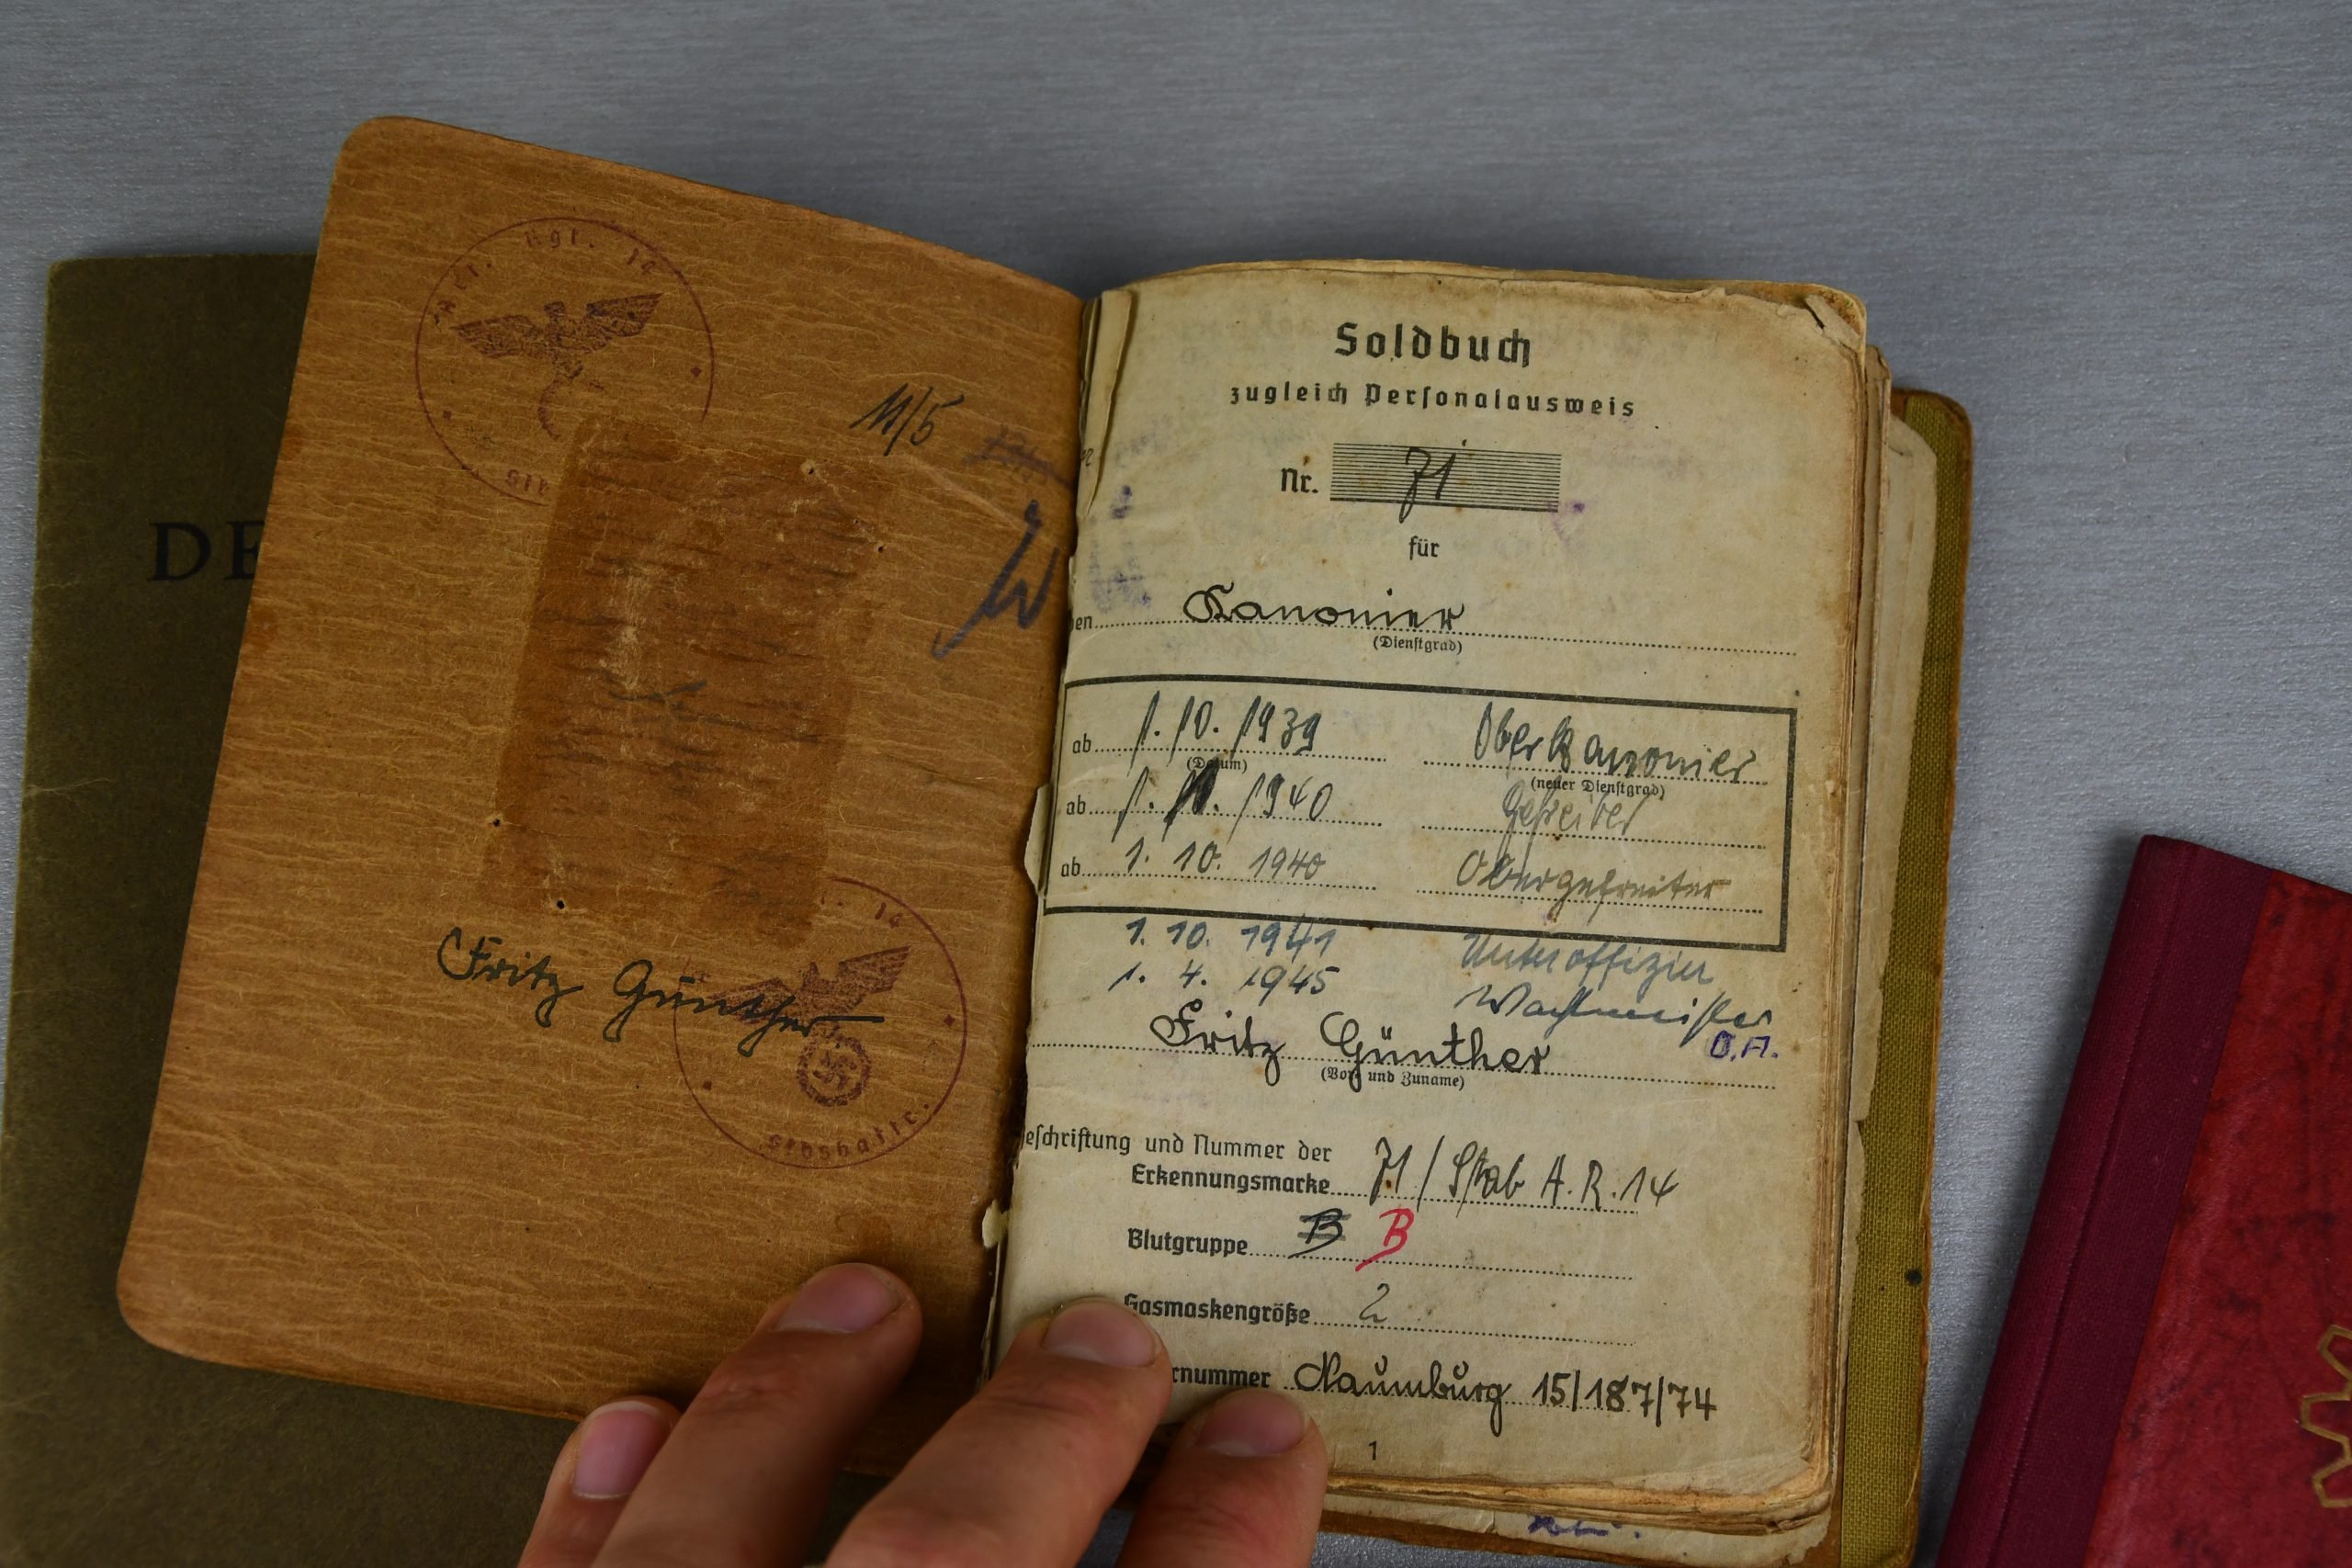 DE
Art. Rgt. 14
11/5
Fritz Günther
14
Stbsbattr.
Soldbuch
zugleich Personalausweis
Nr. 71
für
en Kanonier
(Dienstgrad)
ab 1. 10. 1939 Oberkanonier
(Datum) (neuer Dienstgrad)
ab 1. 1940 Gefreiter
ab 1. 10. 1940 Obergefreiter
1. 10. 1941 Unteroffizier
1. 4. 1945 Wachtmeister
O.A.
Fritz Günther
(Vor- und Zuname)
eschriftung und Nummer der
Erkennungsmarke 71/Stab A.R.14
Blutgruppe B B
Gasmaskengröße 2
rnummer Naumburg 15/187/74
1